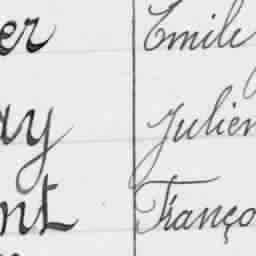 er Emile
ay Julien
nt Franço